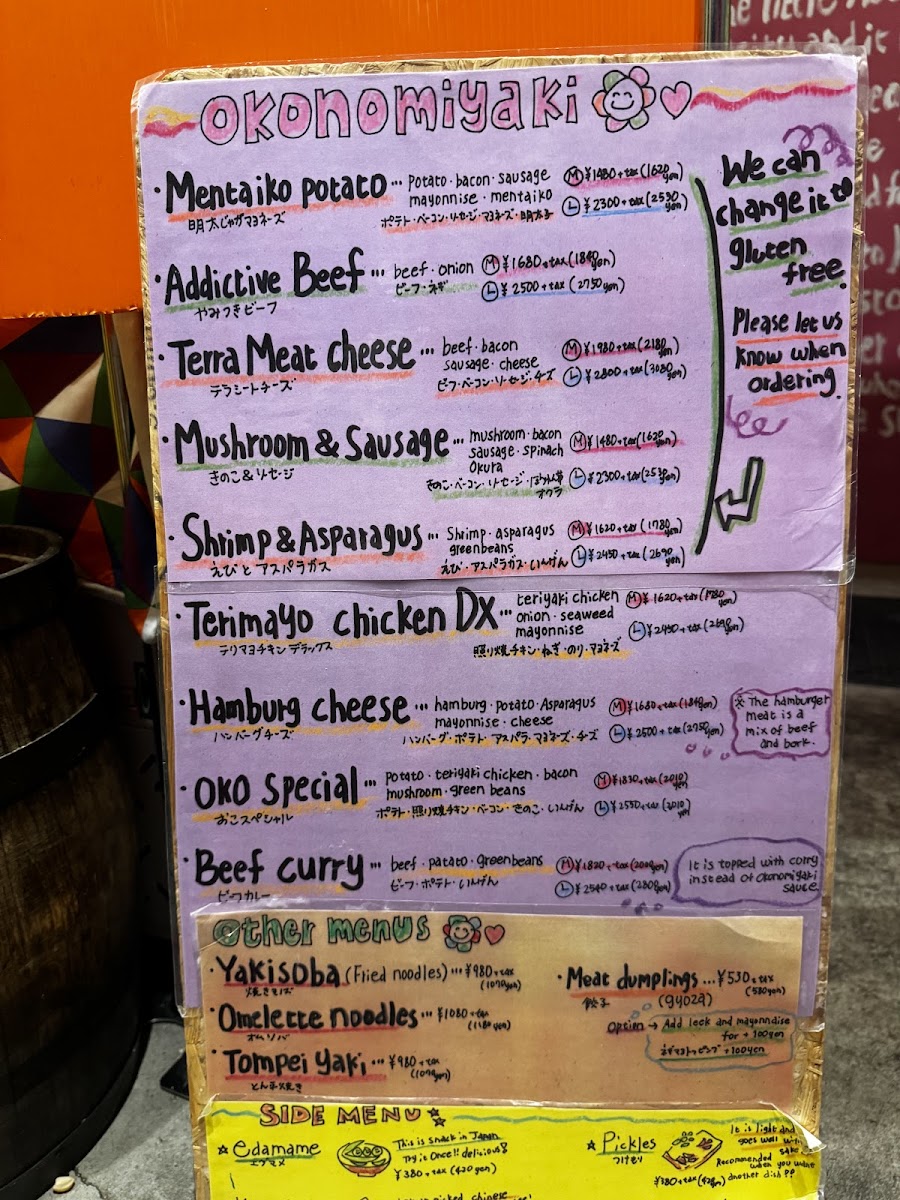 OKONOMIYAKI
・Mentaiko potato … Potato・bacon・sausage Ⓜ ¥1480+tax(1620yen)
mayonnise・mentaiko
明太じゃがマヨネーズ ポテト・ベーコン・ソーセージ・マヨネーズ・明太子 Ⓛ ¥2300+tax(2530yen)
・Addictive Beef … beef・onion Ⓜ ¥1680+tax(1840yen)
やみつきビーフ ビーフ・ネギ Ⓛ ¥2500+tax(2750yen)
・Terra Meat cheese … beef・bacon Ⓜ ¥1980+tax(2180yen)
sausage・cheese
テラミートチーズ ビーフ・ベーコン・ソーセージ・チーズ Ⓛ ¥2800+tax(3080yen)
・Mushroom & Sausage … mushroom・bacon Ⓜ ¥1480+tax(1620yen)
sausage・spinach
okura
きのこ&ソーセージ きのこ・ベーコン・ソーセージ・ほうれん草 Ⓛ ¥2300+tax(2530yen)
オクラ
・Shrimp & Asparagus … Shrimp・asparagus Ⓜ ¥1620+tax(1780yen)
greenbeans
えびとアスパラガス えび・アスパラガス・いんげん Ⓛ ¥2450+tax(2690yen)
We can
change it to
gluten
free.
Please let us
know when
ordering.
・Terimayo chicken DX … teriyaki chicken Ⓜ ¥1620+tax(1780yen)
onion・seaweed
mayonnise Ⓛ ¥2450+tax(2690yen)
テリマヨチキンデラックス 照り焼チキン・ねぎ・のり・マヨネーズ
・Hamburg cheese … hamburg・potato・Asparagus Ⓜ ¥1680+tax(1840yen)
mayonnise・cheese
ハンバーグチーズ ハンバーグ・ポテト・アスパラ・マヨネーズ・チーズ Ⓛ ¥2500+tax(2750yen)
※ The hamburger
meat is a
mix of beef
and bork.
・OKO Special … potato・teriyaki chicken・bacon Ⓜ ¥1830+tax(2010yen)
mushroom・green beans
おこスペシャル ポテト・照り焼チキン・ベーコン・きのこ・いんげん Ⓛ ¥2550+tax(2010yen)
・Beef curry … beef・patato・greenbeans Ⓜ ¥1820+tax(2000yen)
ビーフカレー ビーフ・ポテト・いんげん Ⓛ ¥2540+tax(2800yen)
It is topped with corry
instead of okonomiyaki
sauce
Other menus
・Yakisoba (Fried noodles) … ¥980+tax
焼きそば (1070yen)
・Omelette noodles … ¥1080+tax
オムソバ (1180yen)
・Tompei yaki … ¥980+tax
とん平焼き (1070yen)
・Meat dumplings … ¥530+tax
餃子 (gyoza) (580yen)
option → Add leek and mayonndise
for +100yen
ネギマヨトッピング +100yen
SIDE MENU
☆ edamame
エダマメ
This is snack in Japan
Try is Once!! delicious!
¥380+tax (420yen)
☆ Pickles
つけもの
It is light and
goes well with
sake
Recommended
when you want
another dish??
¥380+tax(420yen)